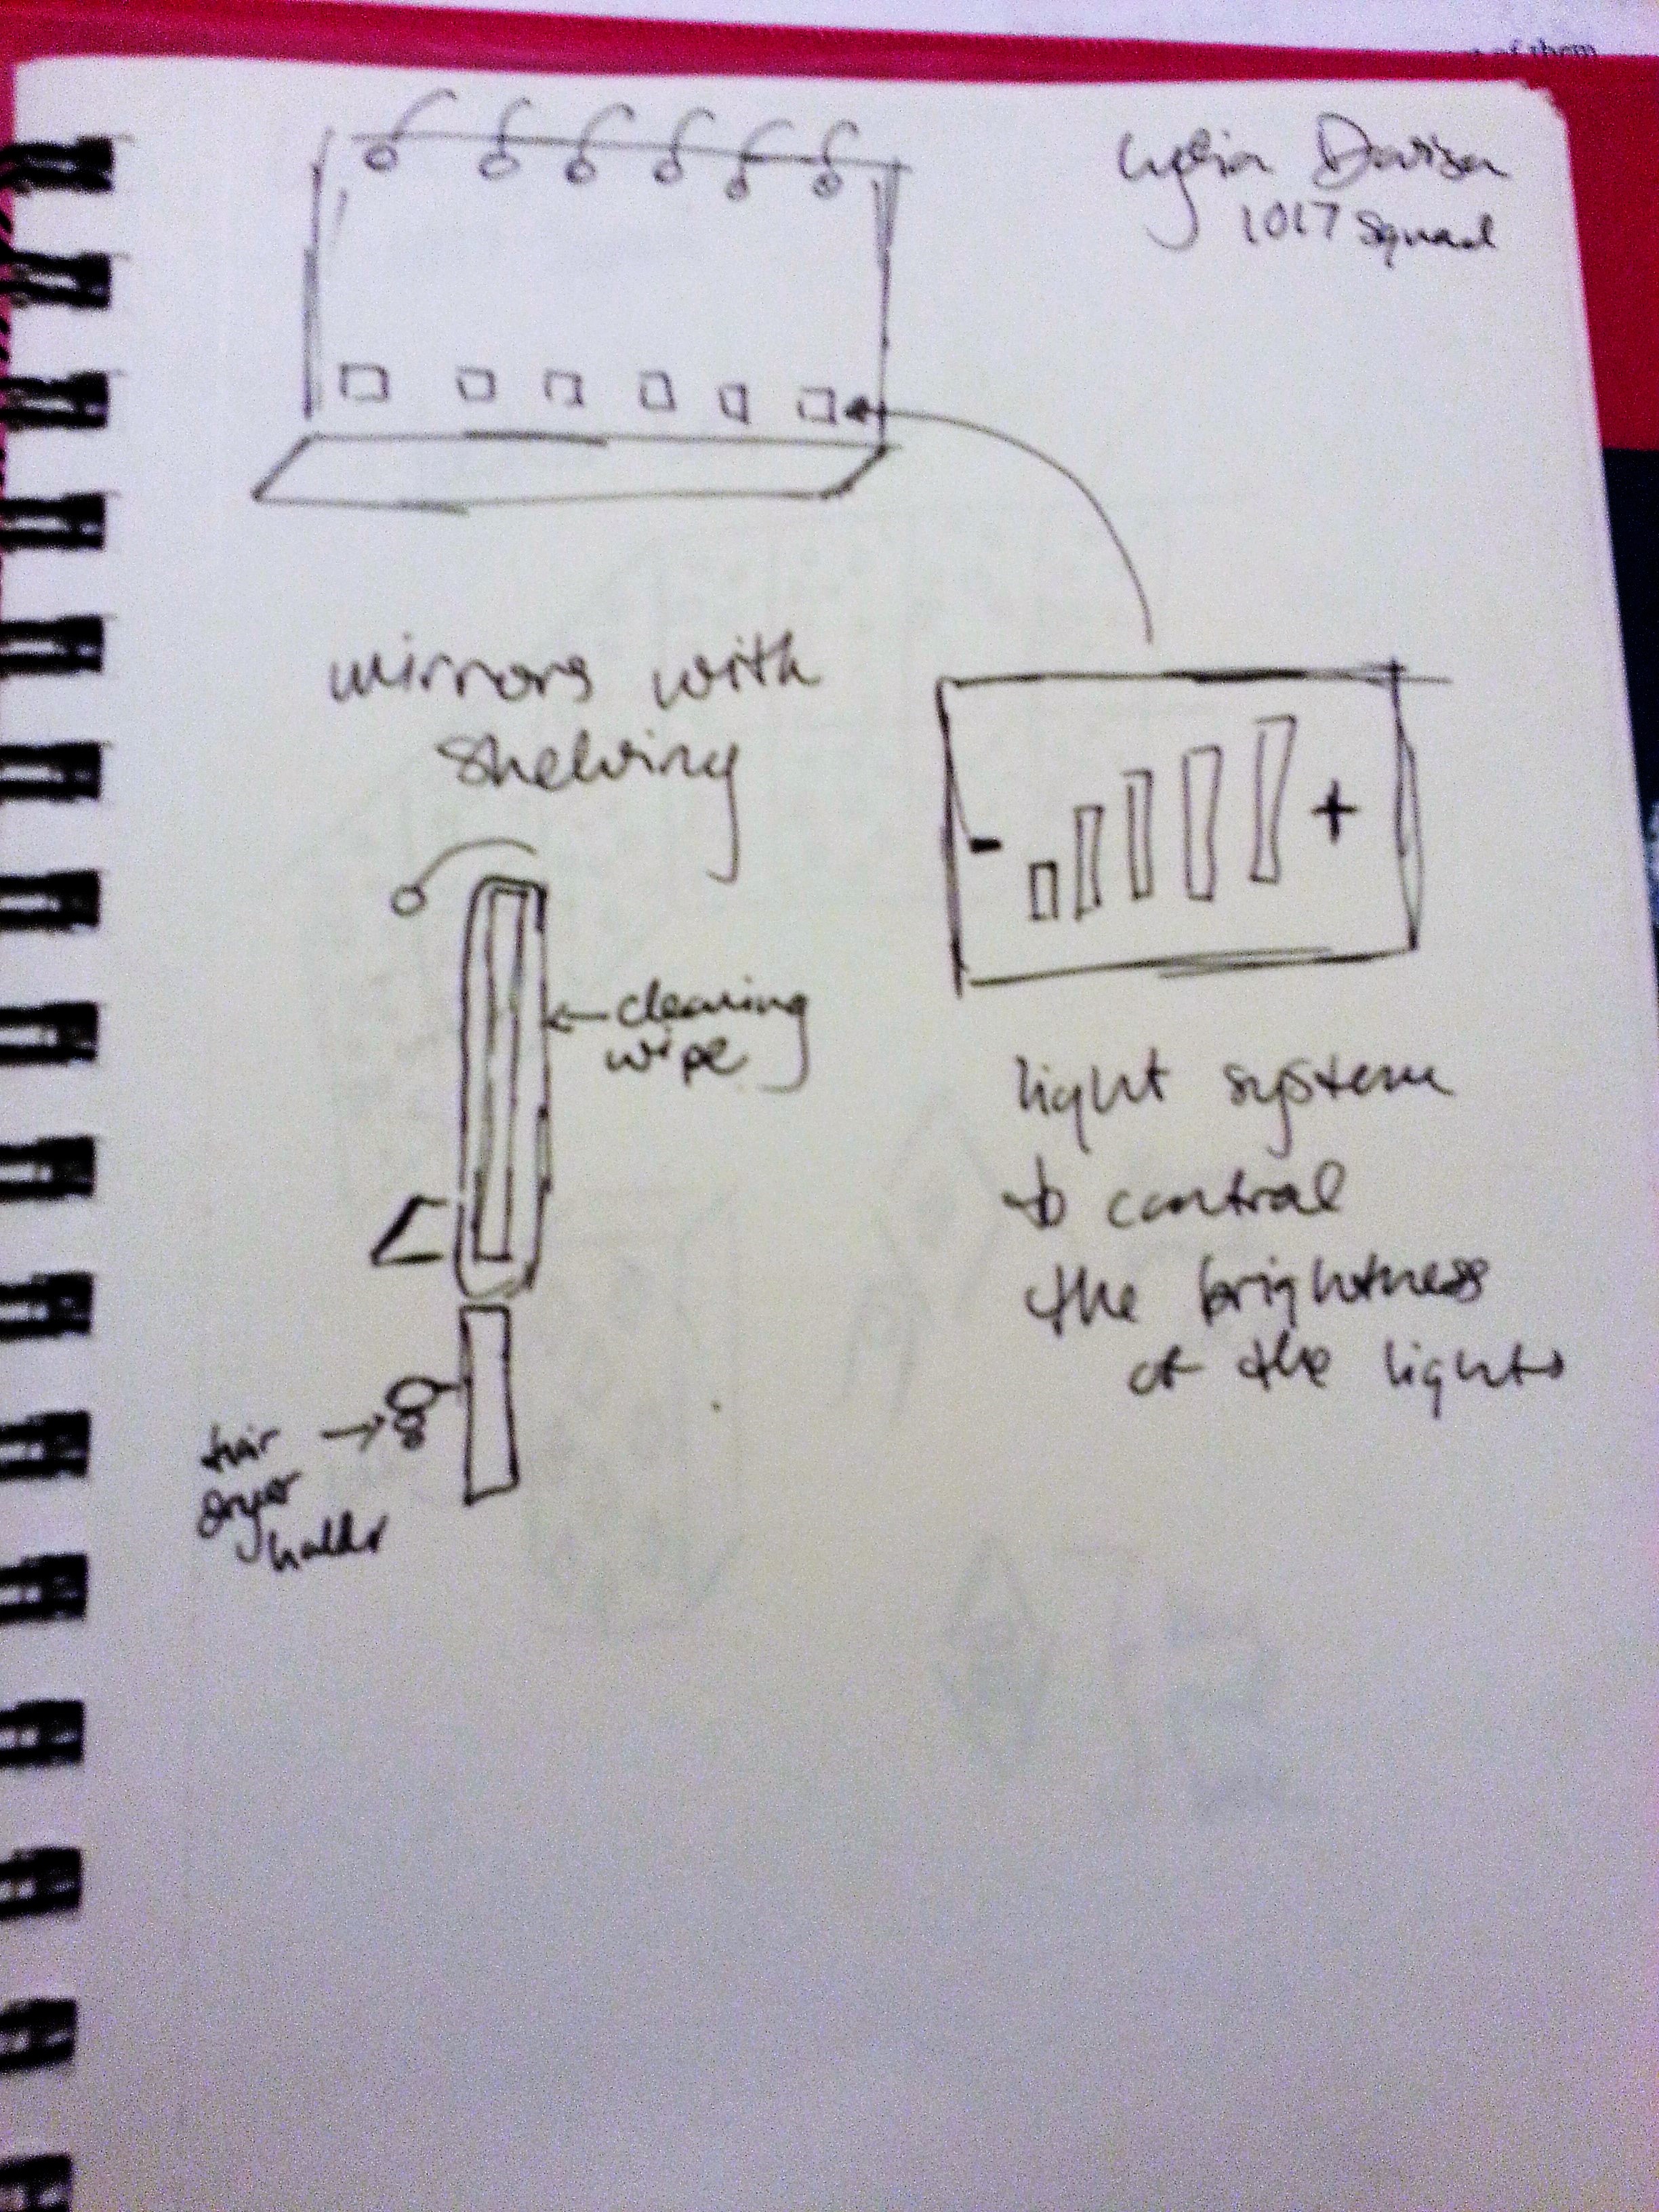 of them
Lydia Davison
1017 squad
mirrors with
shelving
- +
cleaning
wipe
light system
to control
the brightness
of the lights
hair
dryer
holder